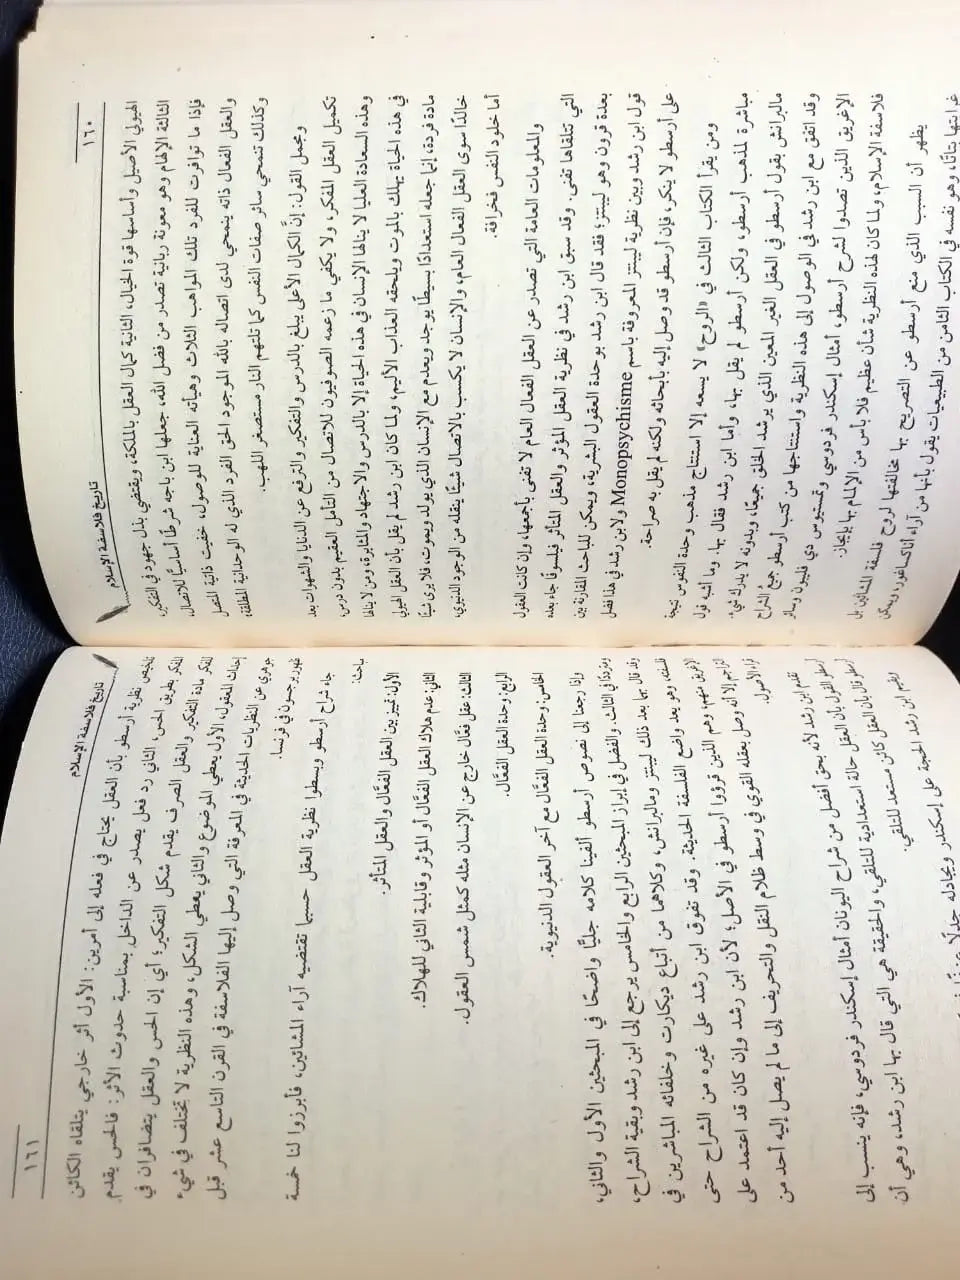 تاريخ فلاسفة الإسلام
١٦٠
الهيولي الأصيل وأساسها قوة الخيال، الثانية كمال العقل بالملكة، ويقتضي بذل جهود في التفكير،
الثالثة الإلهام وهو معونة ربانية تصدر من فضل الله، جعلها ابن باجه شرطًا أساسيًّا للاتصال،
فإذا ما توافرت للفرد تلك المواهب الثلاث وهيأته العناية للوصول، خفيت ذاتية المتصل
والعقل الفعال ذاته ينمحي لدى اتصاله بالله الموجود الحق الفرد الذي له الوحدانية المطلقة،
وكذلك تنمحي سائر صفات النفس كما تلتهم النار مستصغر اللهب.
ويجمل القول: إنَّ الكمال الأعلى يبلغ بالدرس والتفكير والترفع عن الدنايا والشهوات بعد
تكميل العقل المفكر، ولا يكفي ما زعمه الصوفيون للاتصال من التأمل العقيم بدون درس،
وهذه السعادة العليا لا ينالها الإنسان في هذه الحياة إلا بالدرس والاجتهاد والمثابرة، ومن لا ينالها
في هذه الحياة يهلك بالموت ويلحقه العذاب الأليم، ولما كان ابن رشد لم يقل بأن العقل الهيولي
مادة فردة، إنما جعله استعدادًا بسيطًا يوجد ويعدم مع الإنسان الذي يولد ويموت، فلا يرى شيئًا
خالدًا سوى العقل الفعال العام، والإنسان لا يكسب بالاتصال شيئًا ينقله من الوجود الدنيوي،
أما خلود النفس فخرافة.
والمعلومات العامة التي تصدر عن العقل الفعال العام لا تفنى بأجمعها، وإن كانت العقول
التي تتلقاها تفنى. وقد سبق ابن رشد في نظرية العقل المؤثر والعقل المتأثر فيلسوفًا جاء بعده
بعدة قرون وهو ليبنتز؛ فقد قال ابن رشد بوحدة العقول البشرية، ويمكن للباحث المقارنة بين
قول ابن رشد وبين نظرية ليبنتز المعروفة باسم Monopsychisme ولابن رشد في هذا فضل
على أرسطو لا ينكر، فإن أرسطو قد وصل إليه بأبحاثه ولكنه لم يقل به صراحة.
ومن يقرأ الكتاب الثالث في «الروح» لا يسعه إلا استنتاج مذهب وحدة النفوس نتيجة
مباشرة لمذهب أرسطو، ولكن أرسطو لم يقل بها، وأما ابن رشد فقال بها. وما أشبه قول
مالبرانش بقول أرسطو في العقل الغير المعين الذي يرشد الخلق جميعًا، وبدونه لا يدرك شيء.
وقد اتفق مع ابن رشد في الوصول إلى هذه النظرية واستنتاجها من كتب أرسطو جميعُ الشراح
الإغريق الذين تصدوا لشرح أرسطو، أمثال إسكندر فردوسي وتمستيوس دي فليبون وسائر
فلاسفة الإسلام، ولما كان لهذه النظرية شأن عظيم فلا بأس من الإلمام بها بإيجاز.
يظهر أن السبب الذي منع أرسطو عن التصريح بها مخالفتها لروح فلسفة المشائين بل
غرابتها بتاتًا، وهو نفسه في الكتاب الثامن من الطبيعيات يقول بأنها من آراء أناكساغور، ويمكن
تاريخ فلاسفة الإسلام
١٦١
تلخيص نظرية أرسطو بأن العقل يحتاج في فعله إلى أمرين: الأول أثر خارجي يتلقاه الكائن
المفكر بطريق الحس، الثاني رد فعل يصدر عن الداخل بمناسبة حدوث الأثر: فالحس يقدم
للفكر مادة التفكير والعقل الصرف يقدم شكل التفكير؛ أي إن الحس والعقل يتضافران في
إحداث المعقول، الأول يعطي الموضوع والثاني يعطي الشكل، وهذه النظرية لا تختلف في شيء
جوهري عن النظريات الحديثة في المعرفة التي وصل إليها الفلاسفة في القرن التاسع عشر قبل
ظهور برجسون في فرنسا.
جاء شراح أرسطو وبسطوا نظرية العقل حسبما تقتضيه آراء المشائين، فأبرزوا لنا خمسة
مباحث:
الأول: تمييز بين العقل الفعَّال والعقل المتأثر.
الثاني: عدم هلاك العقل الفعَّال أو المؤثر وقابلية الثاني للهلاك.
الثالث: عقل فعَّال خارج عن الإنسان مثله كمثل شمس العقول.
الرابع: وحدة العقل الفعَّال.
الخامس: وحدة العقل الفعَّال مع آخر العقول الدنيوية.
وإذا رجعنا إلى نصوص أرسطو ألفينا كلامه جليًّا واضحًا في المبحثين الأول والثاني،
ومترددًا في الثالث، والفضل في إبراز المبحثين الرابع والخامس يرجع إلى ابن رشد وبقية الشراح،
وقد قال بها بعد ذلك ليبنتز ومالبرانش، وكلاهما من أتباع ديكارت وخلفائه المباشرين في
فلسفته، وهو يعد واضع الفلسفة الحديثة. وقد تفوق ابن رشد على غيره من الشراح حتى
الإغريق منهم، وهم الذين قرؤوا أرسطو في الأصل؛ لأن ابن رشد وإن كان قد اعتمد على
التراجم إلا أنه وصل بعقله القوي في وسط ظلام النقل والتحريف إلى ما لم يصل إليه أحد من
قراء الأصول.
تقدم ابن رشد لأنه بحق أفضل من شراح اليونان أمثال إسكندر فردوسي، فإنه ينسب إلى
أرسطو القول بأن العقل حالة استعدادية للتلقي، والحقيقة هي التي قال بها ابن رشد، وهي أن
أرسطو قال بأن العقل كائن مستعد للتلقي.
ويقيم ابن رشد الحجة على إسكندر ويجادله جدلًا